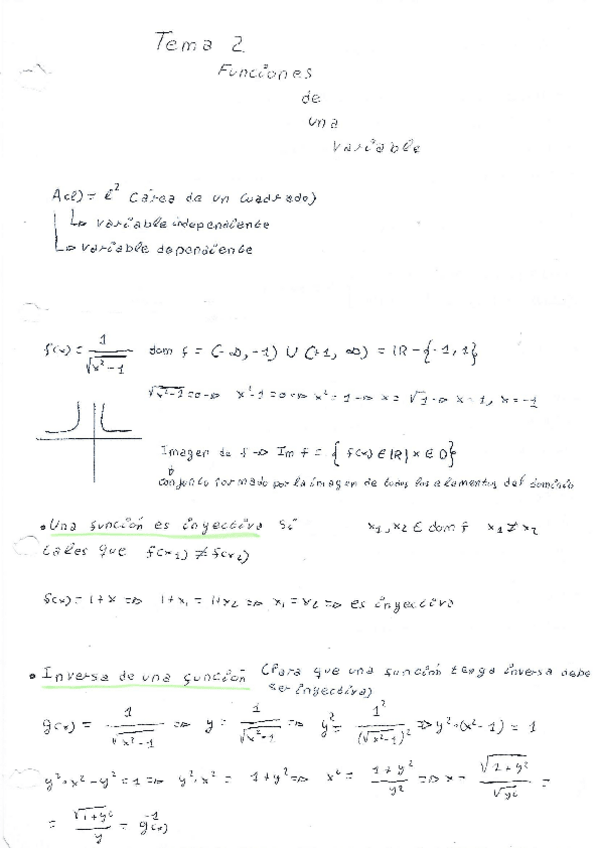 Tema 2
Funciones
de
una
variable
A(l) = l² (área de un cuadrado)
↳ variable independiente
↳ variable dependiente
f(x) = 1/√(x²-1) dom f = (-∞, -1) ∪ (+1, ∞) = ℝ - {-1, 1}
√(x²-1) = 0 → x²-1 = 0 → x² = 1 → x = √1 → x = 1, x = -1
Imagen de f → Im f = { f(x) ∈ ℝ | x ∈ D}
conjunto formado por la imagen de todos los elementos del dominio
• Una función es inyectiva si x₁, x₂ ∈ dom f x₁ ≠ x₂
tales que f(x₁) ≠ f(x₂)
f(x) = 1+x ⇒ 1+x₁ = 1+x₂ ⇒ x₁ = x₂ ⇒ es inyectiva
• Inversa de una función (Para que una función tenga inversa debe
ser inyectiva)
g(x) = 1/√(x²-1) ⇒ y = 1/√(x²-1) ⇒ y² = 1²/(√(x²-1))² ⇒ y²·(x²-1) = 1
y²·x² - y² = 1 ⇒ y²·x² = 1+y² ⇒ x² = (1+y²)/y² ⇒ x = √(1+y²)/√y² =
= √(1+y²)/y = g⁻¹(x)